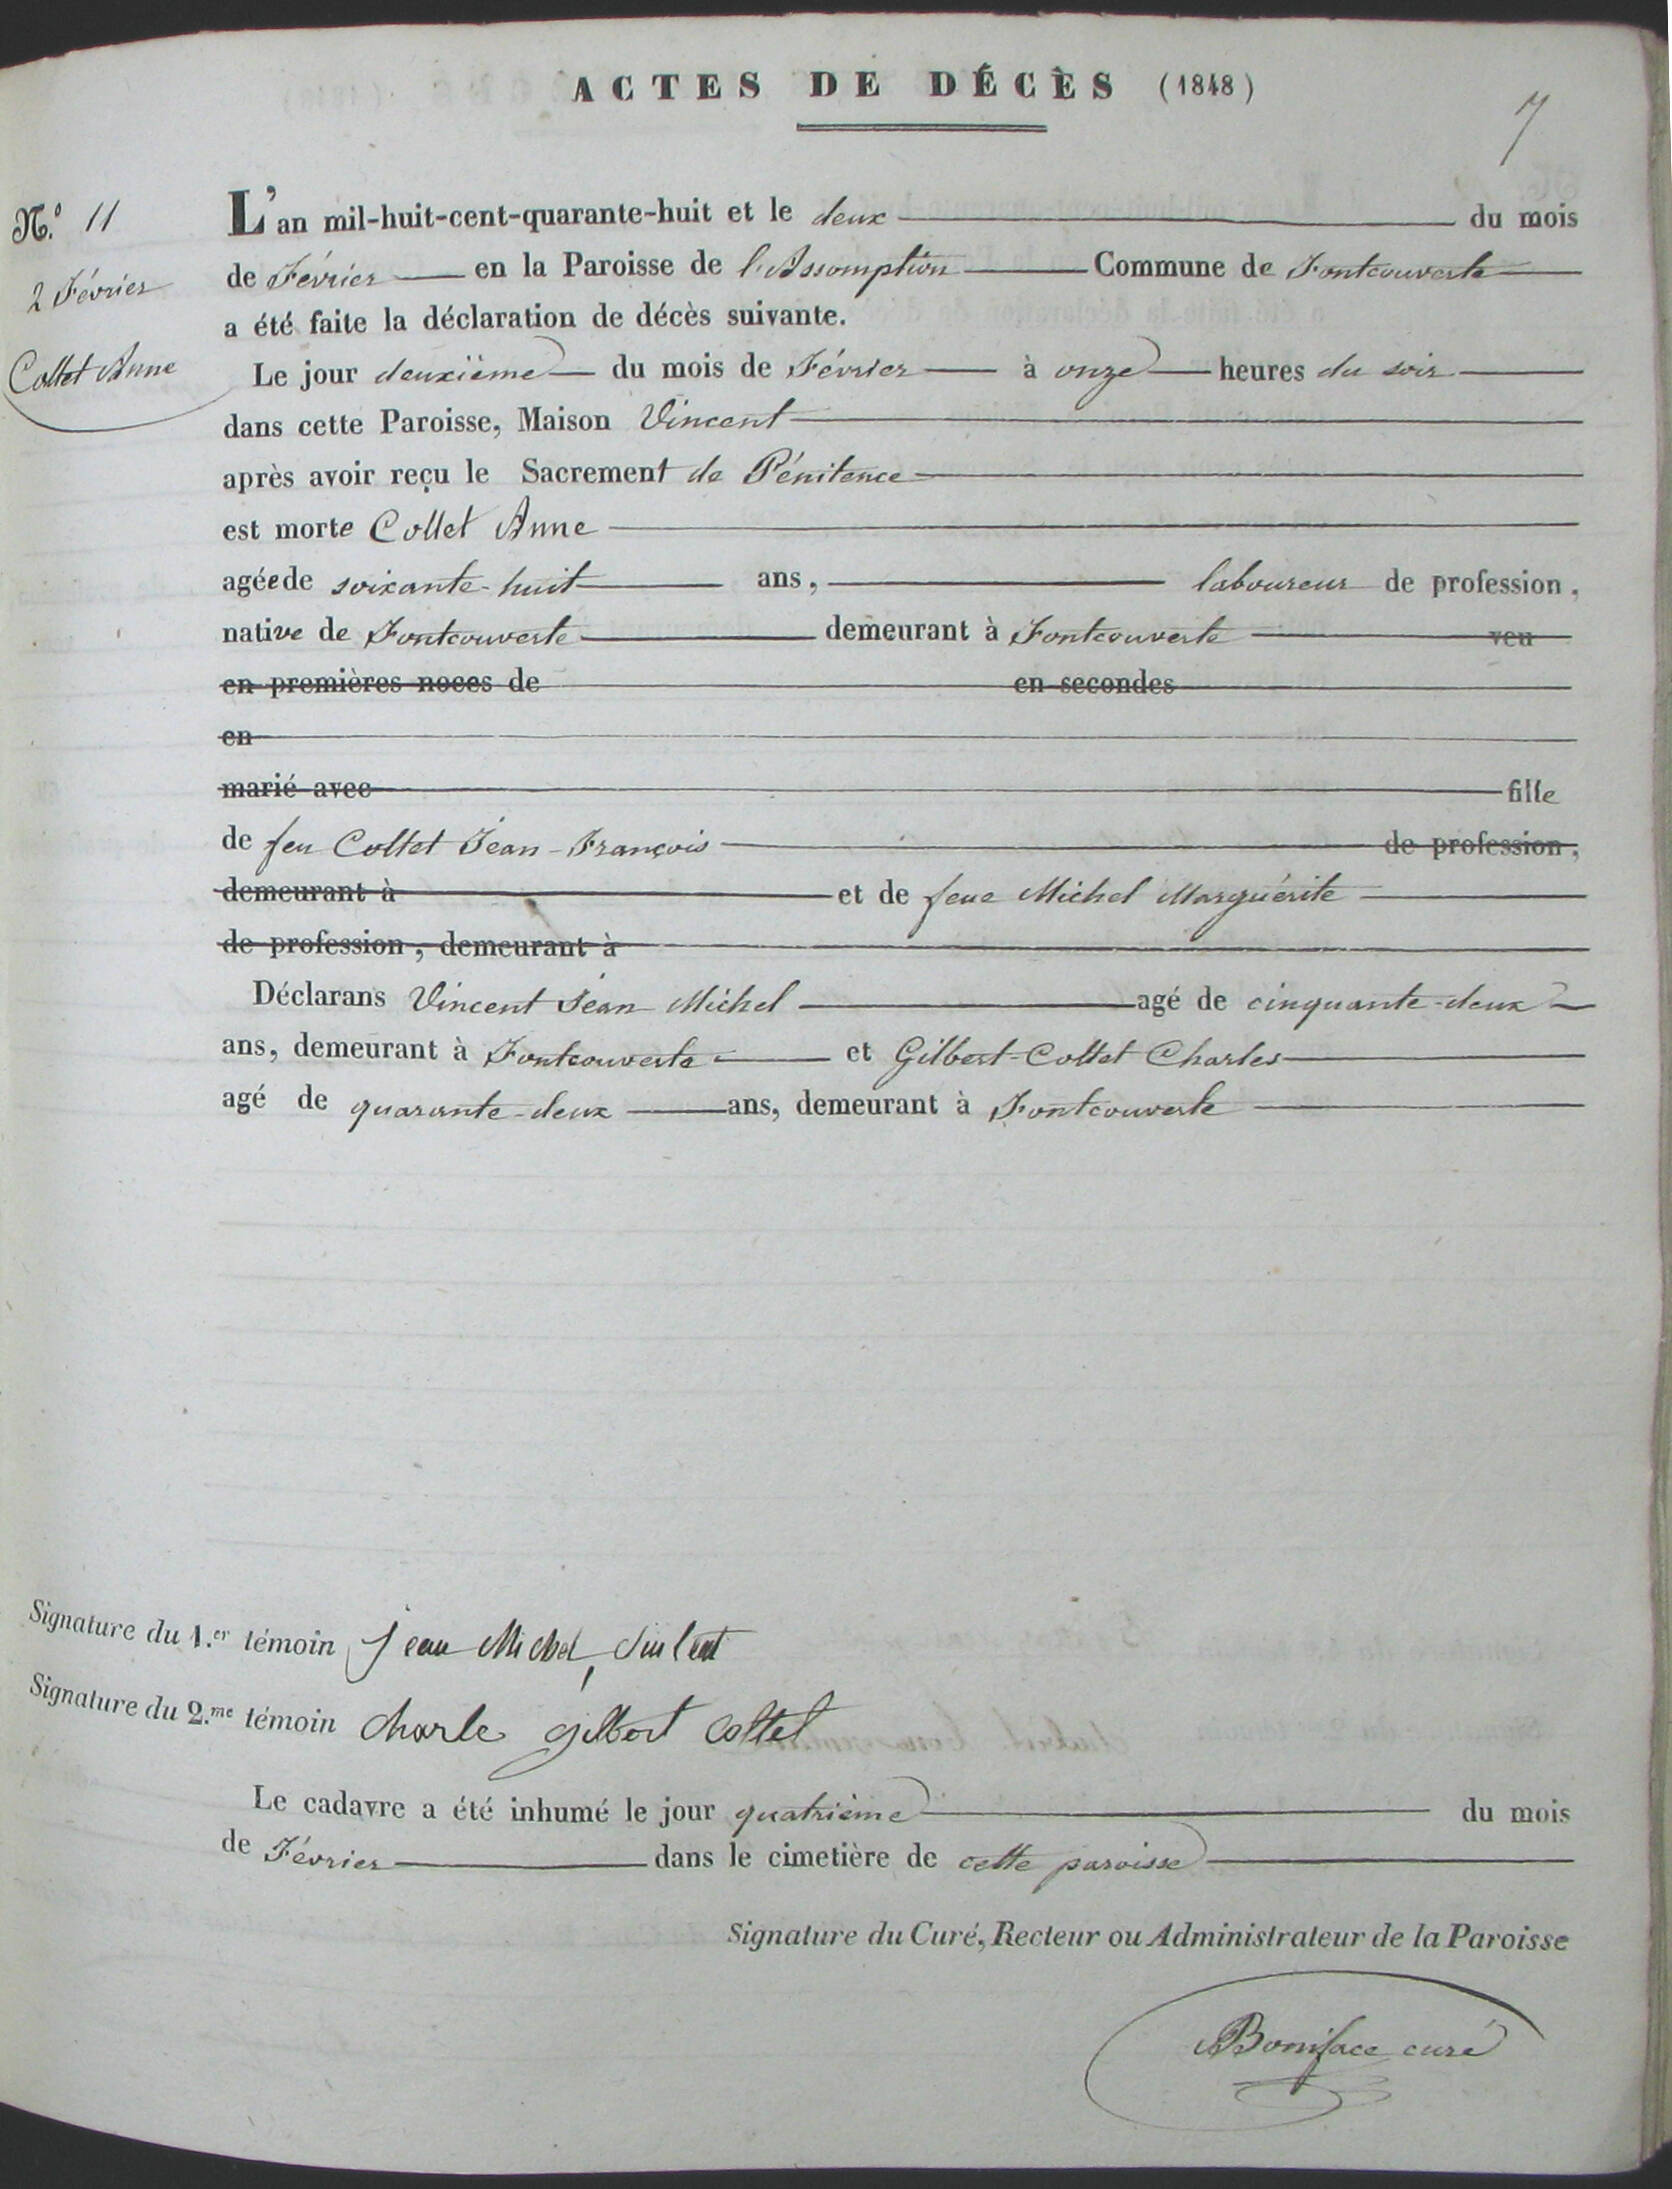 ACTES DE DÉCÈS (1848)
7
N.º 11
2 Février
Collet Anne
L'an mil-huit-cent-quarante-huit et le deux du mois
de Février en la Paroisse de l'Assomption Commune de Fontcouverte
a été faite la déclaration de décès suivante.
Le jour deuxième du mois de Février à onze heures du soir
dans cette Paroisse, Maison Vincent
après avoir reçu le Sacrement de Pénitence
est morte Collet Anne
agée de soixante-huit ans, laboureur de profession,
native de Fontcouverte demeurant à Fontcouverte veu
en premières noces de en secondes
en
marié avec fille
de feu Collet Jean-François de profession,
demeurant à et de feue Michel Marguérite
de profession, demeurant à
Déclarans Vincent Jean Michel agé de cinquante-deux
ans, demeurant à Fontcouverte et Gilbert-Collet Charles
agé de quarante-deux ans, demeurant à Fontcouverte
Signature du 1.er témoin jean Michel Vincent
Signature du 2.me témoin charle gilbert collet
Le cadavre a été inhumé le jour quatrième du mois
de Février dans le cimetière de cette paroisse
Signature du Curé, Recteur ou Administrateur de la Paroisse
Boniface curé